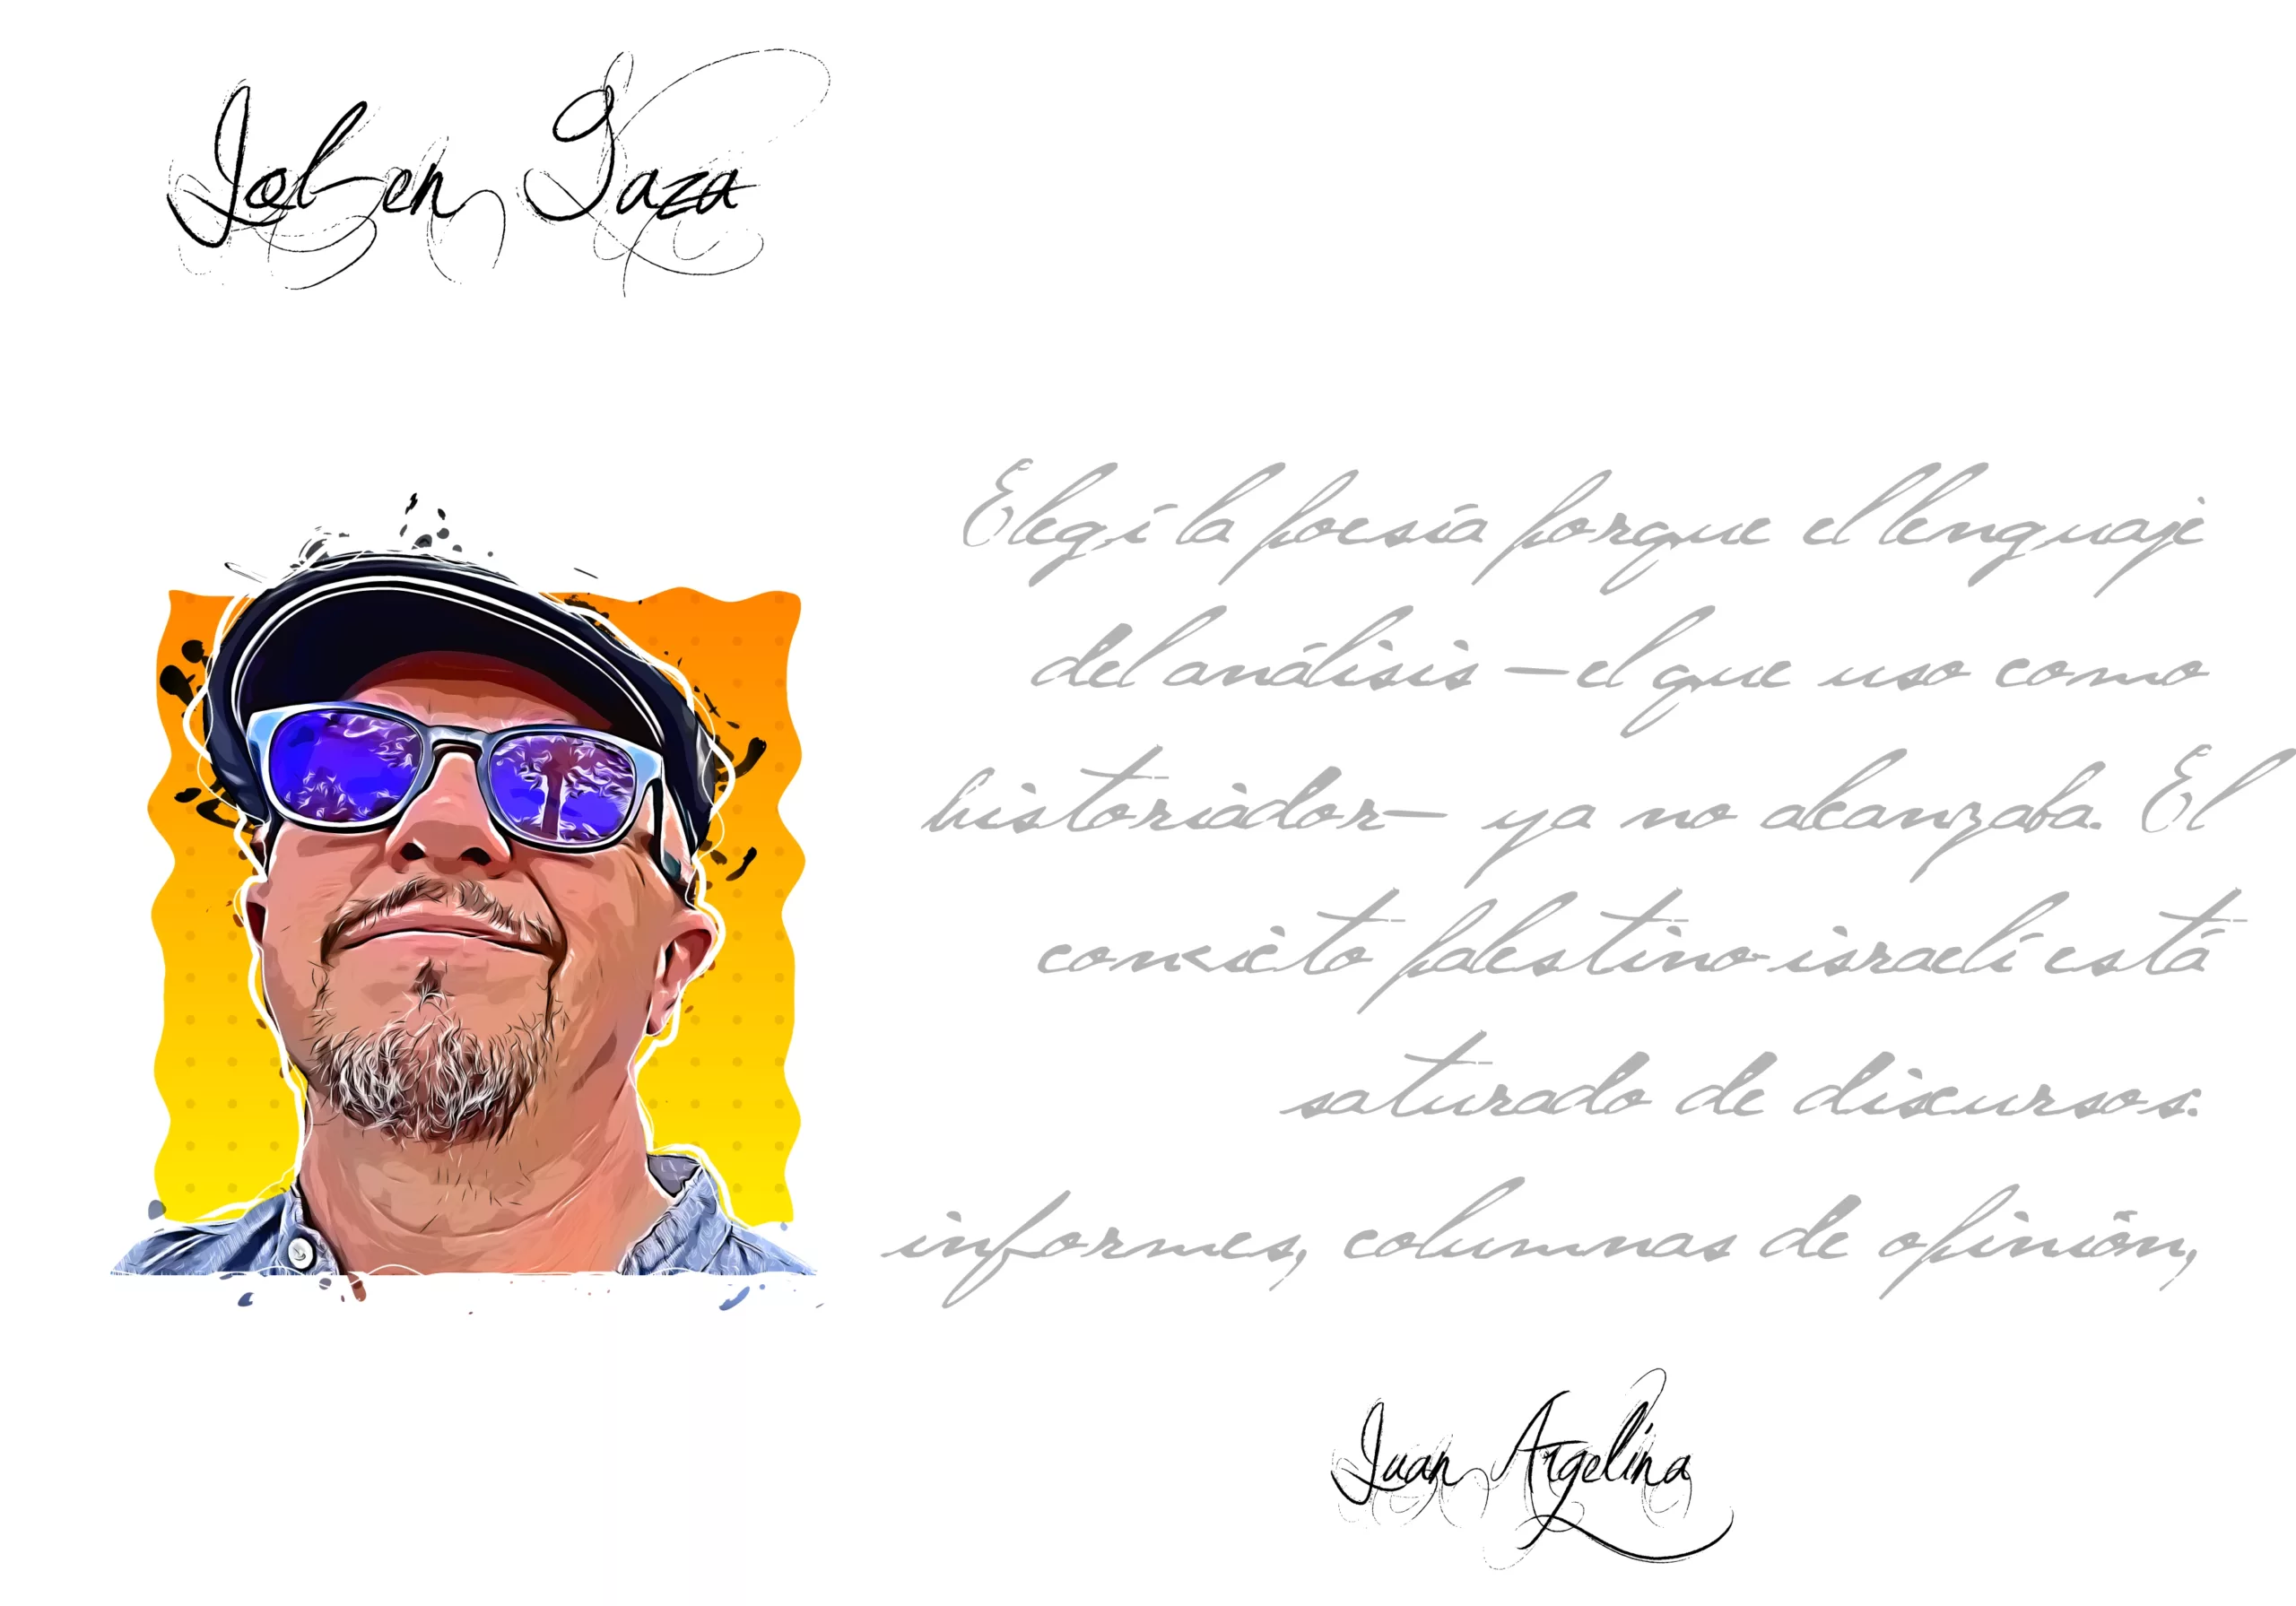 Job en Gaza
Elegí la poesía porque el lenguaje
del análisis —el que uso como
historiador— ya no alcanzaba. El
conflicto palestino-israelí está
saturado de discursos:
informes, columnas de opinión,
Juan Argelina